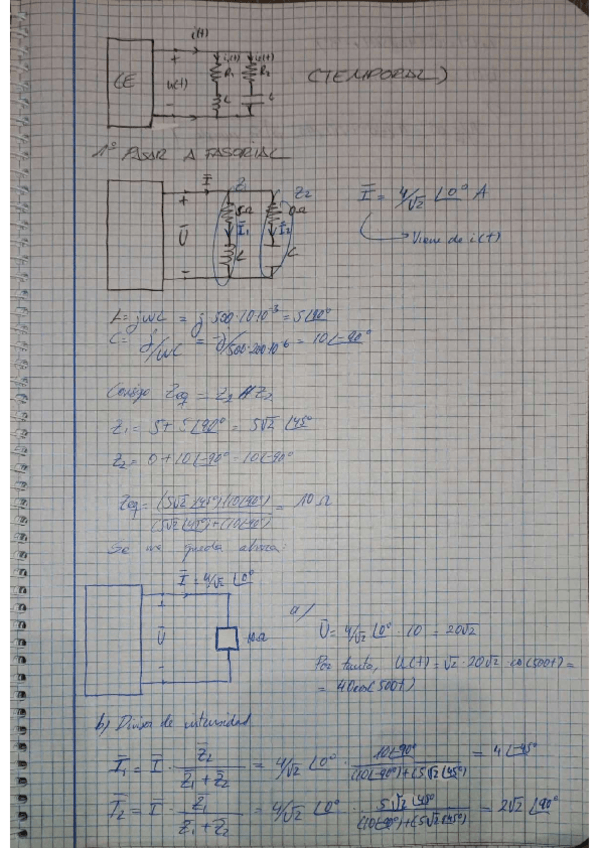 i(t)
+ i₁(t) i₂(t)
CE u(t) R₁ R₂ (TEMPORAL)
- L C
1º PASAR A FASORIAL
Ī Z₁ Z₂ Ī = 4/√2 ∠0° A
+ 5Ω 0Ω
Ū Ī₁ Ī₂ Viene de i(t)
- L C
L = jωL = j 500·10·10⁻³ = 5∠90°
C = -j/ωC = -j/500·200·10⁻⁶ = 10∠-90°
Consigo Zeq = Z₂ // Z₂
Z₁ = 5 + 5∠90° = 5√2 ∠45°
Z₂ = 0 + 10∠-90° = 10∠-90°
Zeq = (5√2 ∠45°)(10∠-90°) / (5√2 ∠45°) + (10∠-90°) = 10Ω
Se nos queda ahora:
Ī = 4/√2 ∠0°
+ a/
Ū 10Ω Ū = 4/√2 ∠0° · 10 = 20√2
- Por tanto, u(t) = √2 · 20√2 · cos(500t) =
= 40cos(500t)
b) Divisor de intensidad
Ī₁ = Ī · Z̄₂ / Z̄₁ + Z̄₂ = 4/√2 ∠0° · 10∠-90° / (10∠-90°) + (5√2 ∠45°) = 4∠-45°
Ī₂ = Ī · Z̄₁ / Z̄₁ + Z̄₂ = 4/√2 ∠0° · 5√2 ∠45° / (10∠-90°) + (5√2 ∠45°) = 2√2 ∠90°